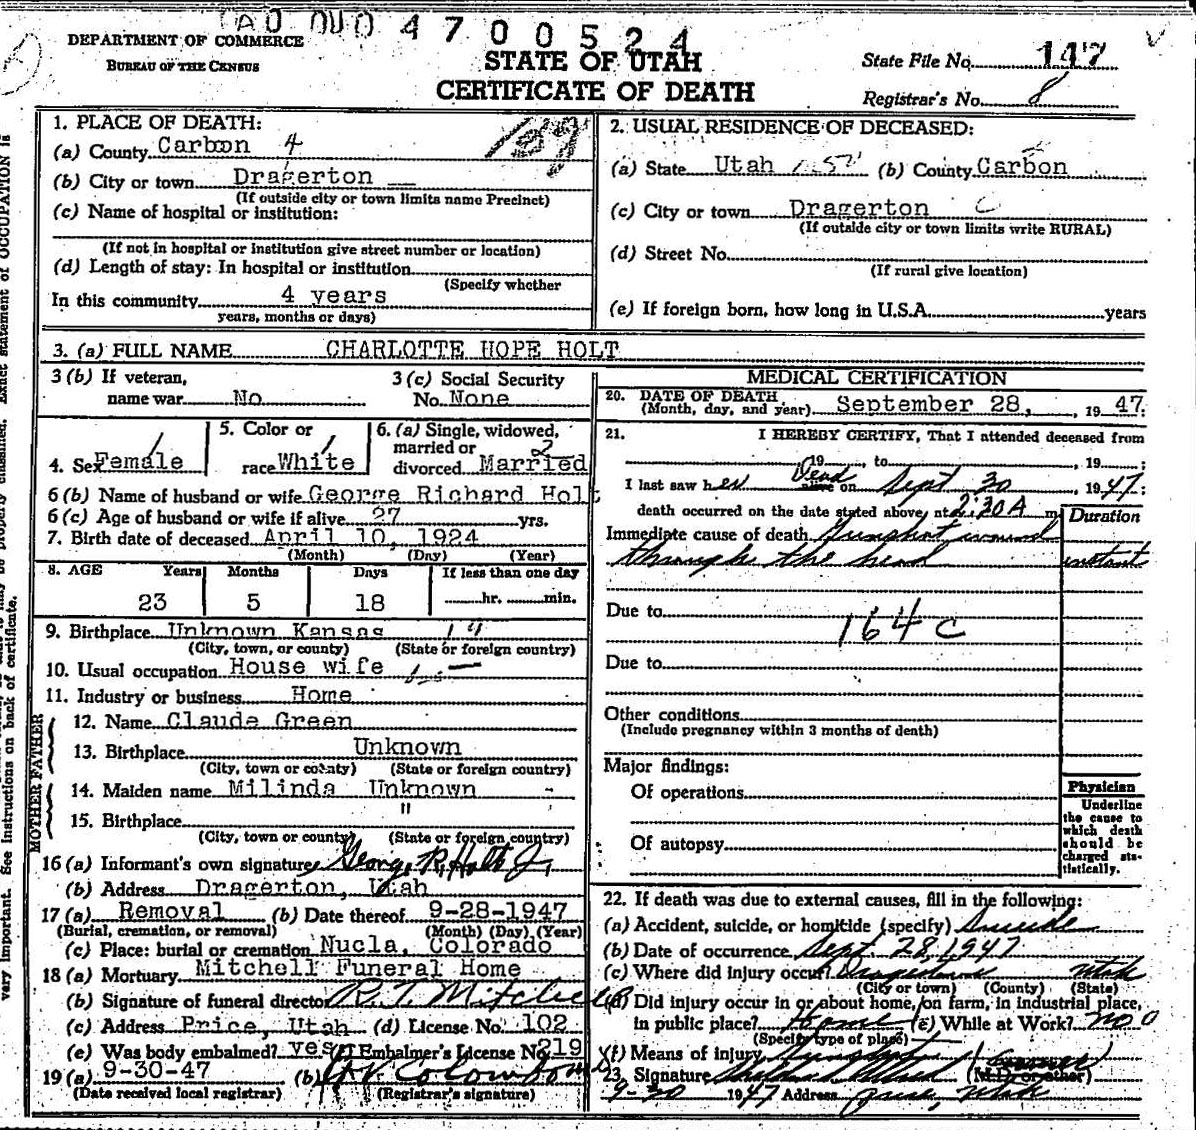 0470 0524
DEPARTMENT OF COMMERCE
BUREAU OF THE CENSUS
STATE OF UTAH
CERTIFICATE OF DEATH
State File No. 147
Registrar's No. 8
1. PLACE OF DEATH:
(a) County Carbon 4
(b) City or town Dragerton
(If outside city or town limits name Precinct)
(c) Name of hospital or institution:
(If not in hospital or institution give street number or location)
(d) Length of stay: In hospital or institution
(Specify whether
In this community 4 years
years, months or days)
2. USUAL RESIDENCE OF DECEASED:
(a) State Utah (b) County Carbon
(c) City or town Dragerton
(If outside city or town limits write RURAL)
(d) Street No.
(If rural give location)
(e) If foreign born, how long in U.S.A. years
3. (a) FULL NAME CHARLOTTE HOPE HOLT
3 (b) If veteran, name war No
3 (c) Social Security No. None
4. Sex Female
5. Color or race White
6. (a) Single, widowed, married or divorced Married
6 (b) Name of husband or wife George Richard Holt
6 (c) Age of husband or wife if alive 27 yrs.
7. Birth date of deceased April 10, 1924
(Month) (Day) (Year)
8. AGE Years Months Days If less than one day
23 5 18 hr. min.
9. Birthplace Unknown Kansas
(City, town, or county) (State or foreign country)
10. Usual occupation House wife
11. Industry or business Home
FATHER
12. Name Claude Green
13. Birthplace Unknown
(City, town or county) (State or foreign country)
MOTHER
14. Maiden name Milinda Unknown
15. Birthplace "
(City, town or county) (State or foreign country)
16 (a) Informant's own signature George R. Holt Jr.
(b) Address Dragerton, Utah
17 (a) Removal (b) Date thereof 9-28-1947
(Burial, cremation, or removal) (Month) (Day) (Year)
(c) Place: burial or cremation Nucla, Colorado
18 (a) Mortuary Mitchell Funeral Home
(b) Signature of funeral director R. T. Mitchell
(c) Address Price, Utah (d) License No. 102
(e) Was body embalmed? yes (f) Embalmer's License No. 219
19 (a) 9-30-47 (b)
(Date received local registrar) (Registrar's signature)
MEDICAL CERTIFICATION
20. DATE OF DEATH
(Month, day, and year) September 28, 1947
21. I HEREBY CERTIFY, That I attended deceased from
19 , to , 19 ;
I last saw her Dead alive on Sept 30 , 1947;
death occurred on the date stated above, at 2:30 A m
Duration
Immediate cause of death Gunshot wound
through the head instant
Due to 164 c
Due to
Other conditions
(Include pregnancy within 3 months of death)
Major findings:
Of operations
Of autopsy
Physician
Underline the cause to which death should be charged statistically.
22. If death was due to external causes, fill in the following:
(a) Accident, suicide, or homicide (specify) Suicide
(b) Date of occurrence Sept. 28, 1947
(c) Where did injury occur? Dragerton Utah
(City or town) (County) (State)
(d) Did injury occur in or about home, on farm, in industrial place,
in public place? Home (e) While at Work? no
(Specify type of place)
(f) Means of injury Gunshot
23. Signature (M.D. or other)
9-30 1947 Address Price, Utah